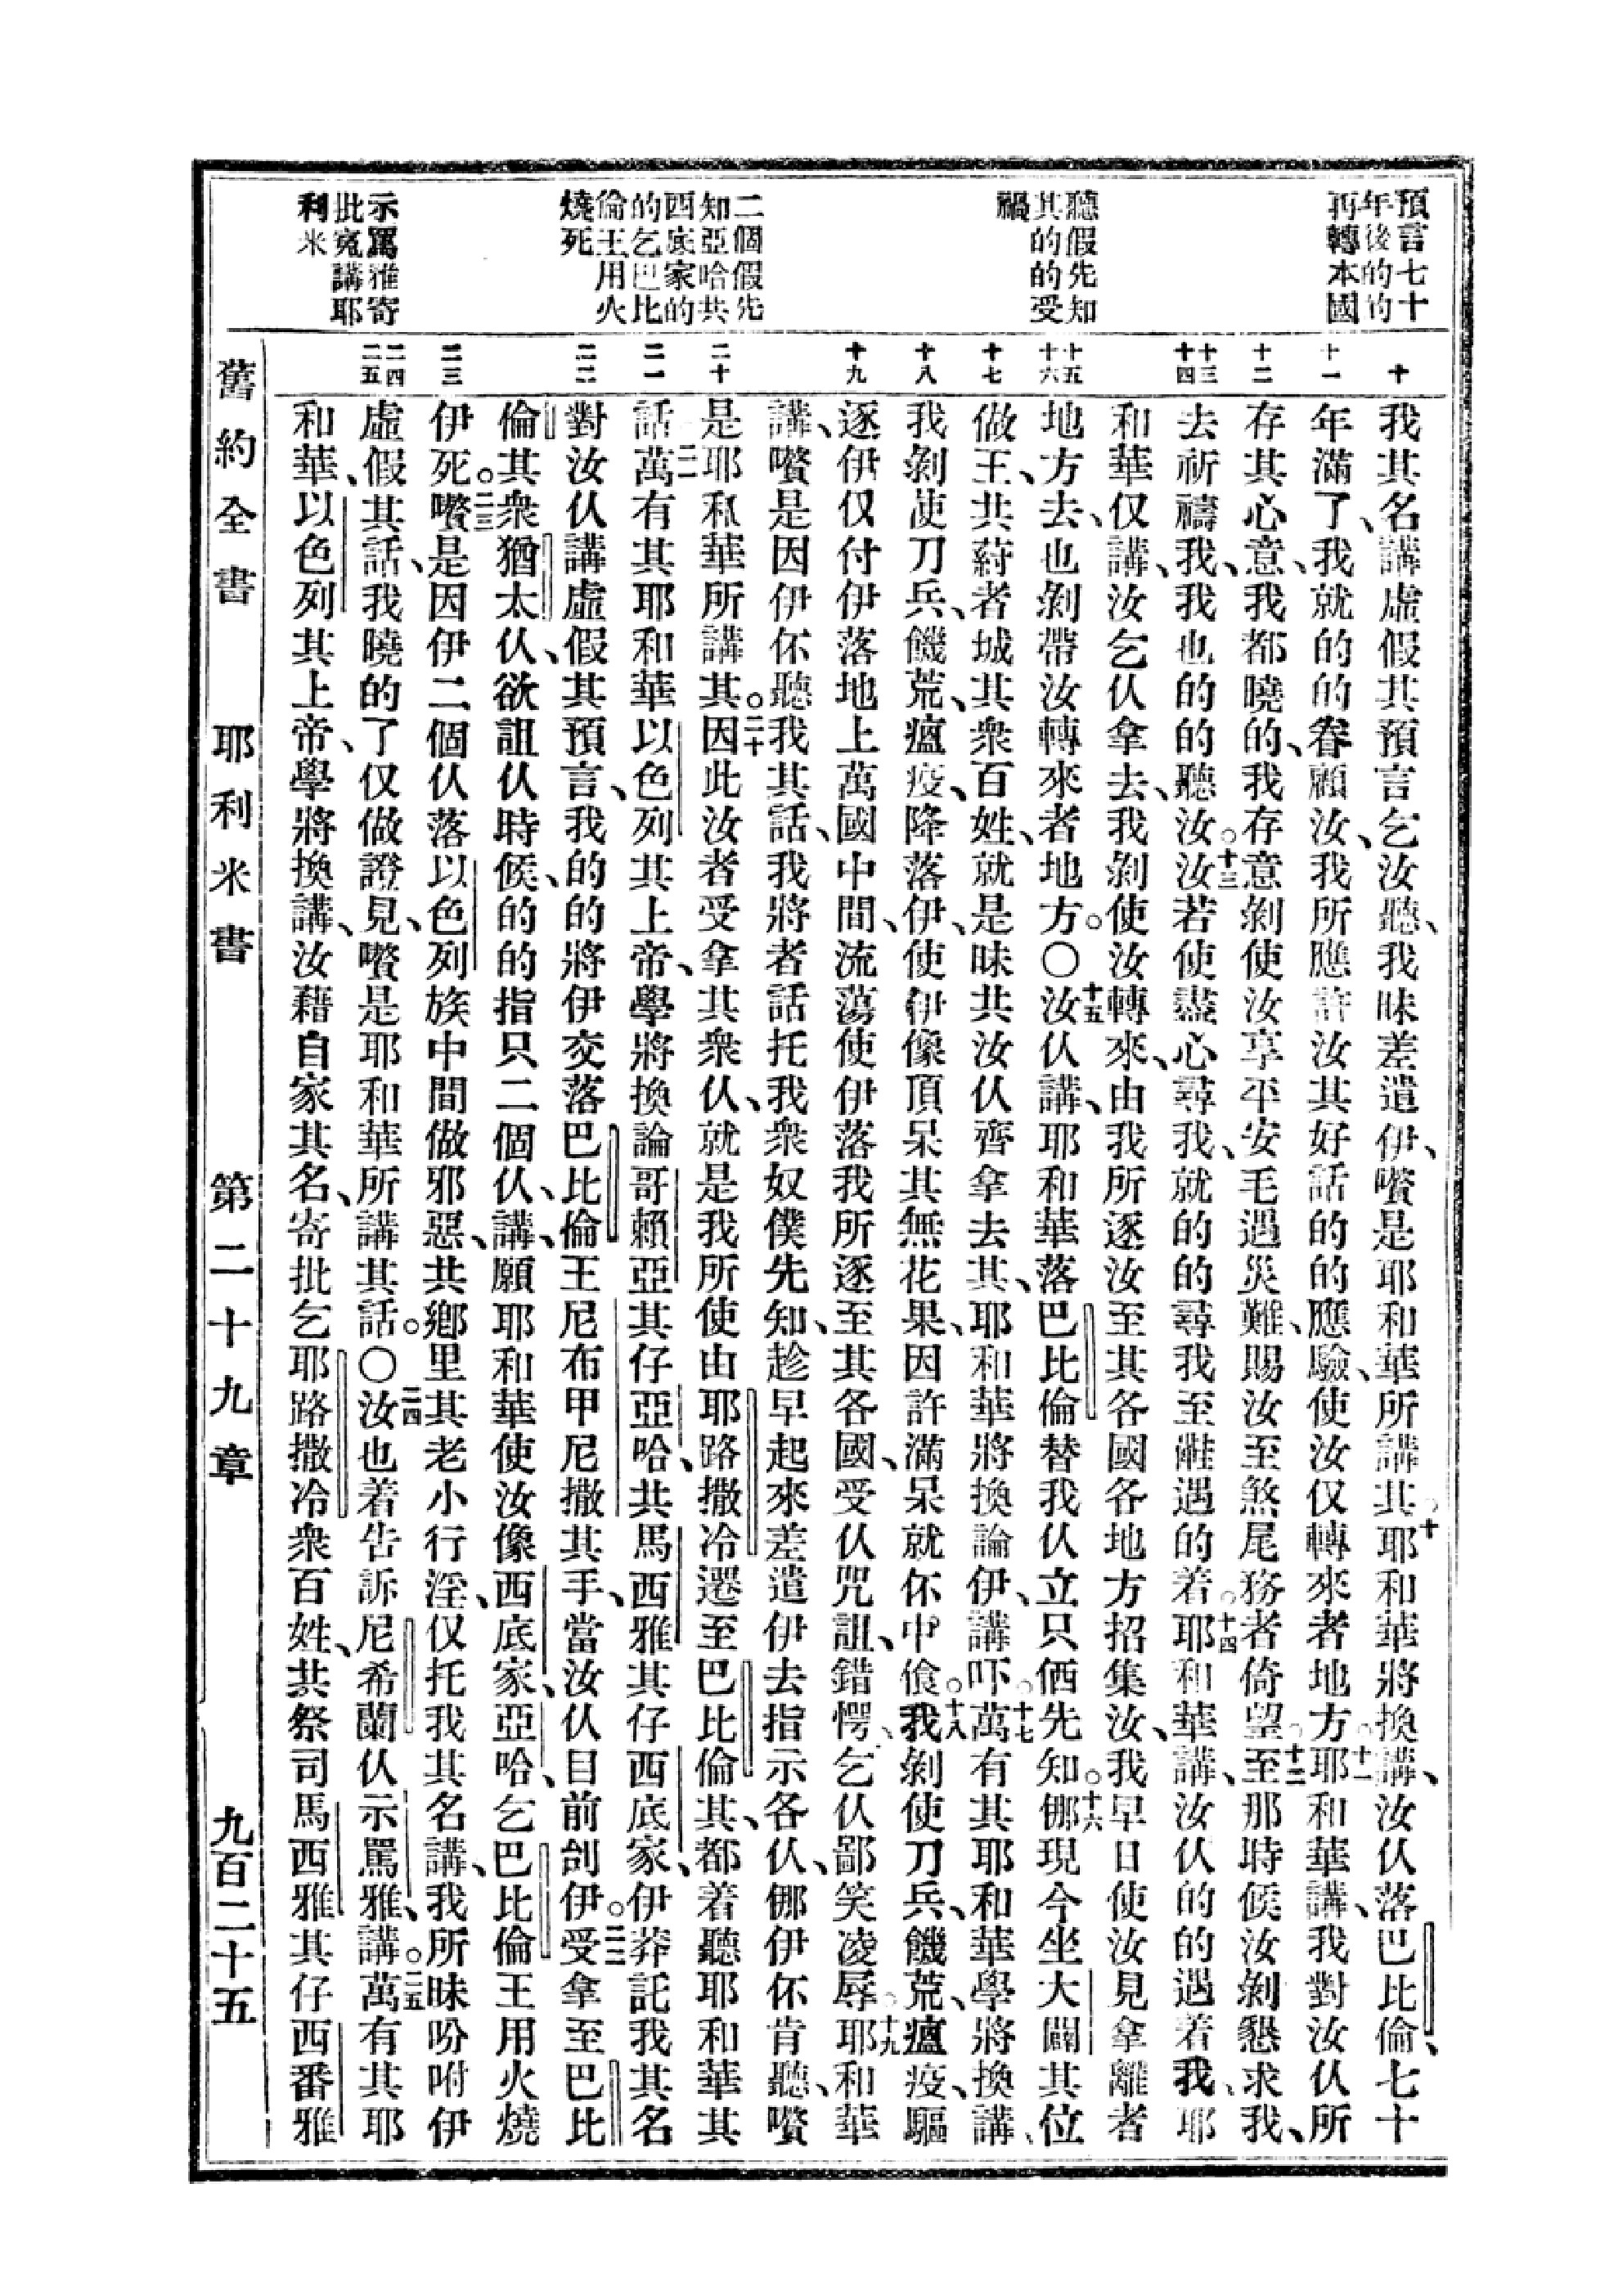 預言七十
年後的的
再轉本國
聽假先知
其的的受
禍
二個假先
知亞哈共
西底家的
的乞巴比
倫王用火
燒死
示罵雅寄
批寃講耶
利米
十
十一
十二
十三
十四
十五
十六
十七
十八
十九
二十
二一
二二
二三
二四
二五
我其名講虛假其預言乞汝聽、我昧差遣伊、嚽是耶和華所講其。十耶和華將換講、汝仈落巴比倫、七十
年滿了、我就的的眷顧汝、我所應許汝其好話的的應驗、使汝仅轉來者地方。十一耶和華講、我對汝仈所
存其心意、我都曉的、我存意剝使汝享平安毛遇災難、賜汝至煞尾務者倚望。十二至那時候汝剝懇求我、
去祈禱我、我也的的聽汝。十三汝若使盡心尋我、就的的尋我至㡹遇的着。十四耶和華講、汝仈的的遇着我、耶
和華仅講、汝乞仈拿去、我剝使汝轉來、由我所逐汝至其各國各地方招集汝、我早日使汝見拿離者
地方去、也剝帶汝轉來者地方。〇十五汝仈講、耶和華落巴比倫替我仈立只⿰亻西先知。十六㑚現今坐大闢其位
做王、共葤者城其衆百姓、就是昧共汝仈齊拿去其、耶和華將換論伊、講吓。十七萬有其耶和華學將換講、
我剝使刀兵、饑荒、瘟疫、降落伊、使伊像頂呆其無花果、因許滿呆就伓中飧。十八我剝使刀兵、饑荒、瘟疫、驅
逐伊仅付伊落地上萬國中間、流蕩使伊落我所逐至其各國、受仈咒詛、錯愕、乞仈鄙笑凌辱。十九耶和華
講、嚽是因伊伓聽我其話、我將者話托我衆奴僕先知、趁早起來差遣伊去指示各仈、㑚伊伓肯聽、嚽
是耶和華所講其。二十因此汝者受拿其衆仈、就是我所使由耶路撒冷遷至巴比倫其、都着聽耶和華其
話。二一萬有其耶和華以色列其上帝、學將換論哥賴亞其仔亞哈、共馬西雅其仔西底家、伊莽託我其名
對汝仈講虛假其預言、我的的將伊交落巴比倫王尼布甲尼撒其手、當汝仈目前刣伊。二二受拿至巴比
倫其衆猶太仈、欲詛仈時候、的的指只二個仈、講、願耶和華使汝像西底家、亞哈、乞巴比倫王用火燒
伊死。二三嚽是因伊二個仈落以色列族中間做邪惡、共鄉里其老小行淫、仅托我其名講、我所昧吩咐伊
虛假其話、我曉的了仅做證見、嚽是耶和華所講其話。〇二四汝也着告訴尼希蘭仈示罵雅、講。二五萬有其耶
和華、以色列其上帝、學將換講、汝藉自家其名、寄批乞耶路撒冷衆百姓、共祭司馬西雅其仔西番雅
舊約全書 耶利米書 第二十九章 九百二十五